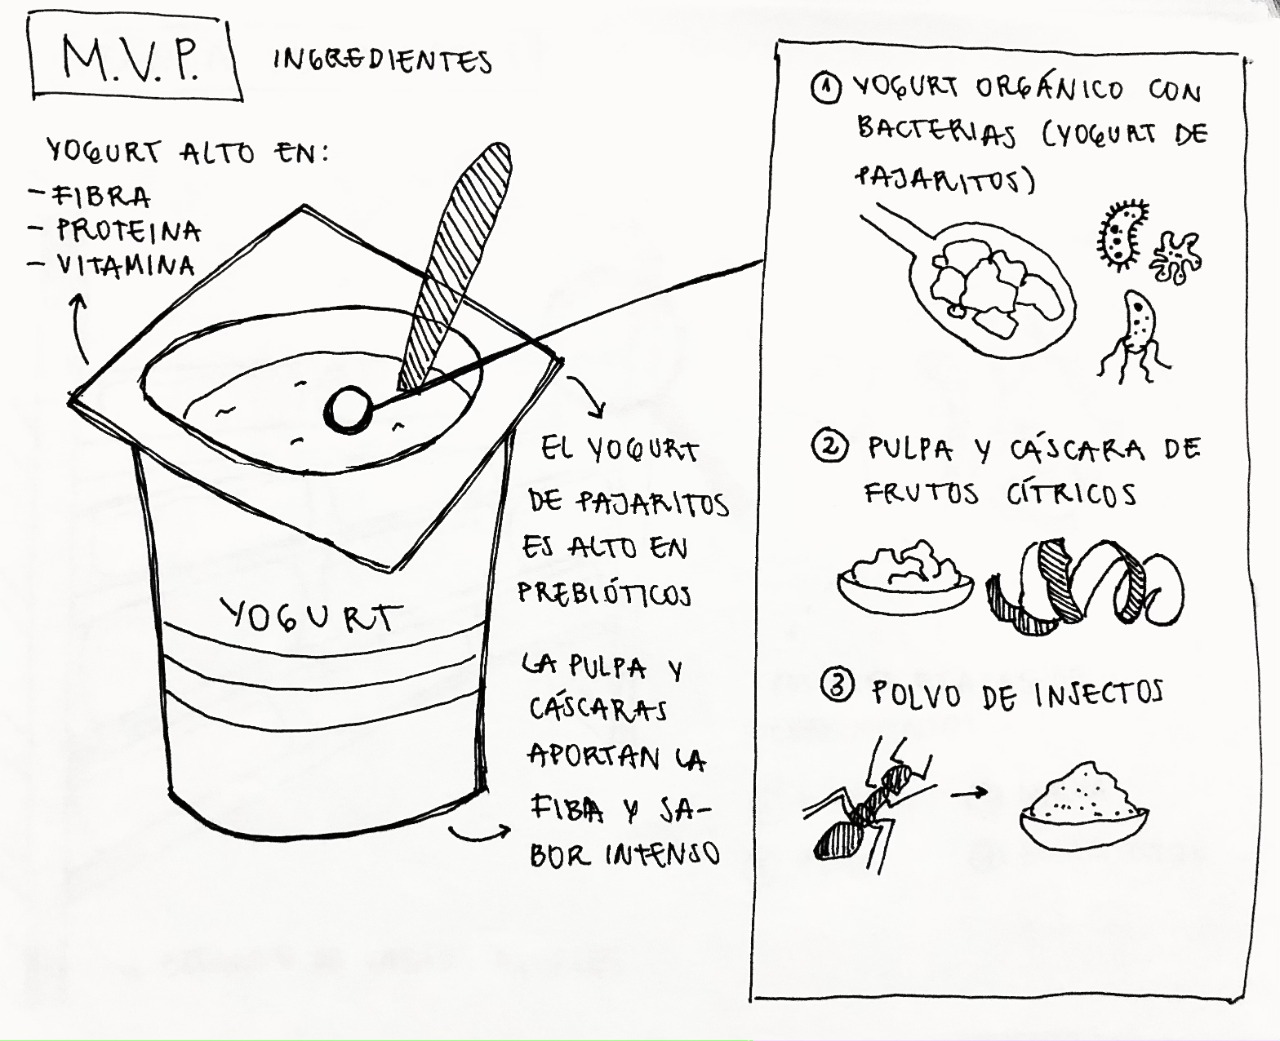 M.V.P.
INGREDIENTES
YOGURT ALTO EN:
- FIBRA
- PROTEINA
- VITAMINA
YOGURT
EL YOGURT
DE PAJARITOS
ES ALTO EN
PREBIÓTICOS
LA PULPA Y
CÁSCARAS
APORTAN LA
FIBA Y SA-
BOR INTENSO
1 YOGURT ORGÁNICO CON
BACTERIAS (YOGURT DE
PAJARITOS)
2 PULPA Y CÁSCARA DE
FRUTOS CÍTRICOS
3 POLVO DE INSECTOS